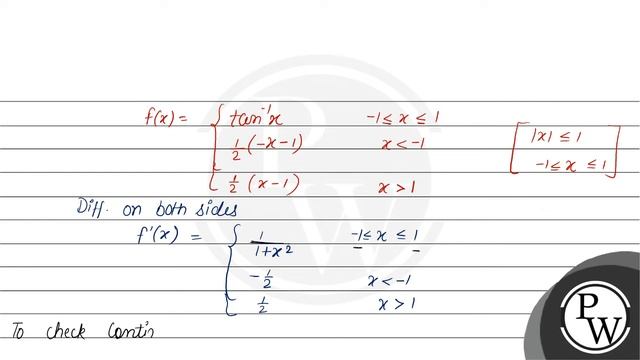 f(x) = { tan⁻¹x -1 ≤ x ≤ 1
1/2 (-x-1) x < -1
1/2 (x-1) x > 1
[ |x| ≤ 1
-1 ≤ x ≤ 1 ]
Diff. on both sides
f'(x) = { 1/1+x² -1 ≤ x ≤ 1
-1/2 x < -1
1/2 x > 1
To check Conti
P
W